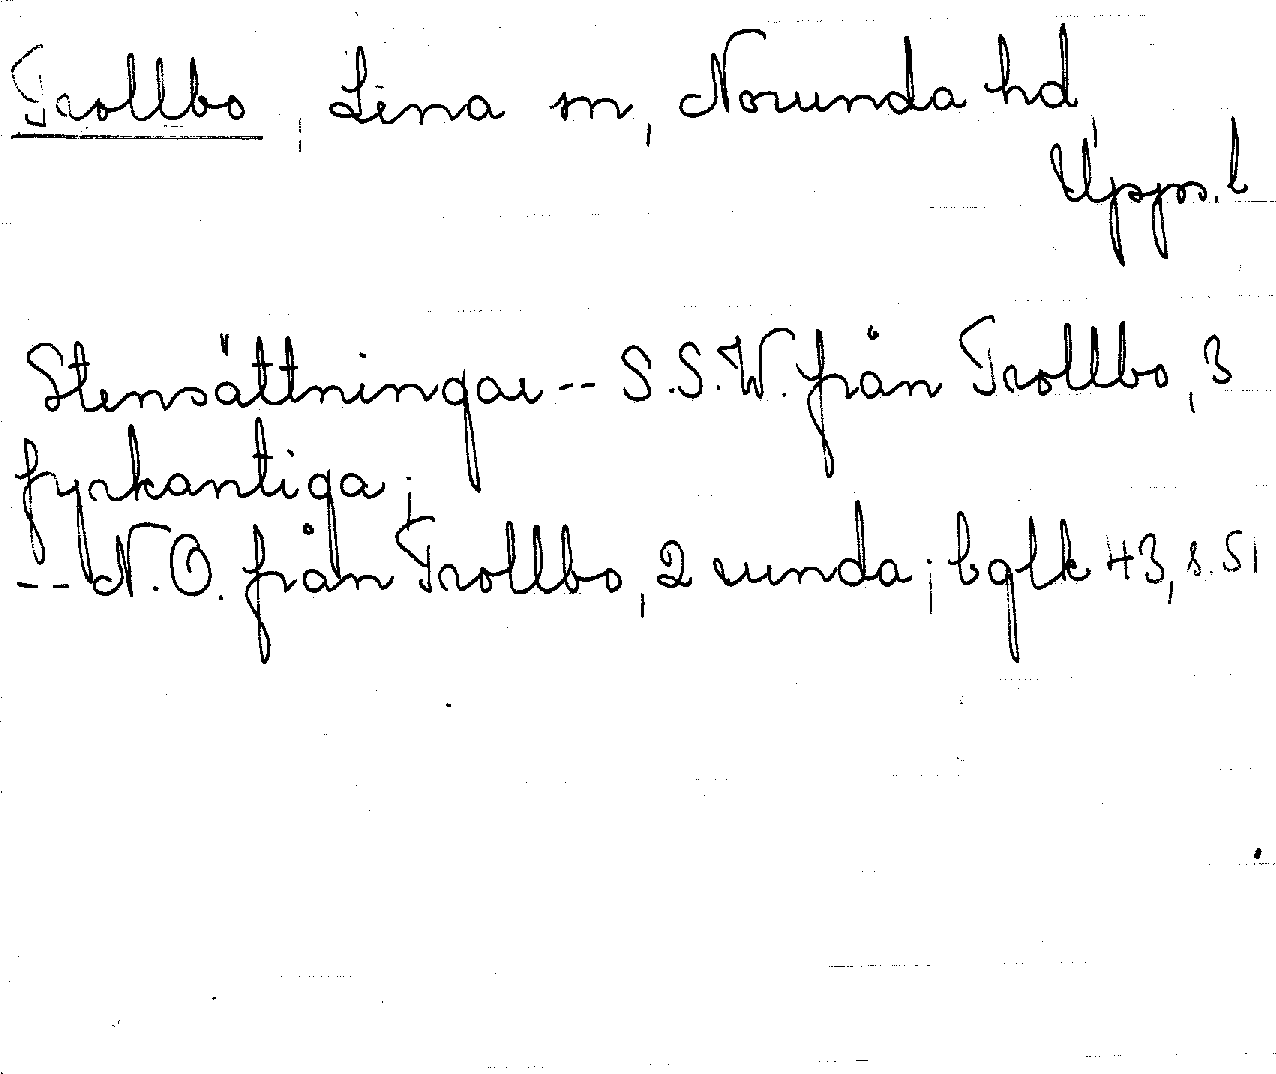 Trollbo, Lena sn, Norunda hd,
Upps. l
Stensättningar -- S.S.W. från Trollbo, 3
fyrkantiga;
-- N.O. från Trollbo, 2 runda; bglk 43, s. 51